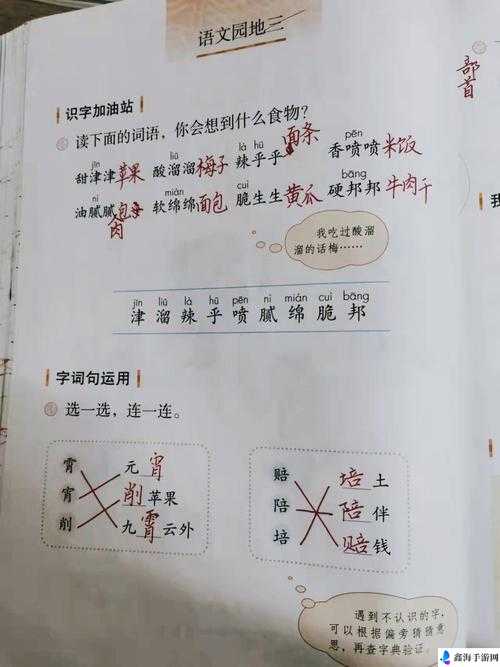 语文园地三
部首
识字加油站
读下面的词语，你会想到什么食物？
jīn liū là hū pēn
甜津津苹果 酸溜溜梅子 辣乎乎面条 香喷喷米饭
nì mián cuì bāng
油腻腻包肉 软绵绵面包 脆生生黄瓜 硬邦邦牛肉干
我吃过酸溜
溜的话梅……
jīn liū là hū pēn nì mián cuì bāng
津 溜 辣 乎 喷 腻 绵 脆 邦
字词句运用
选一选，连一连。
霄 元宵
宵 削苹果
削 九霄云外
赔 培土
陪 陪伴
培 赔钱
遇到不认识的字，
可以根据偏旁猜猜意
思，再查字典验证。
鑫海手游网